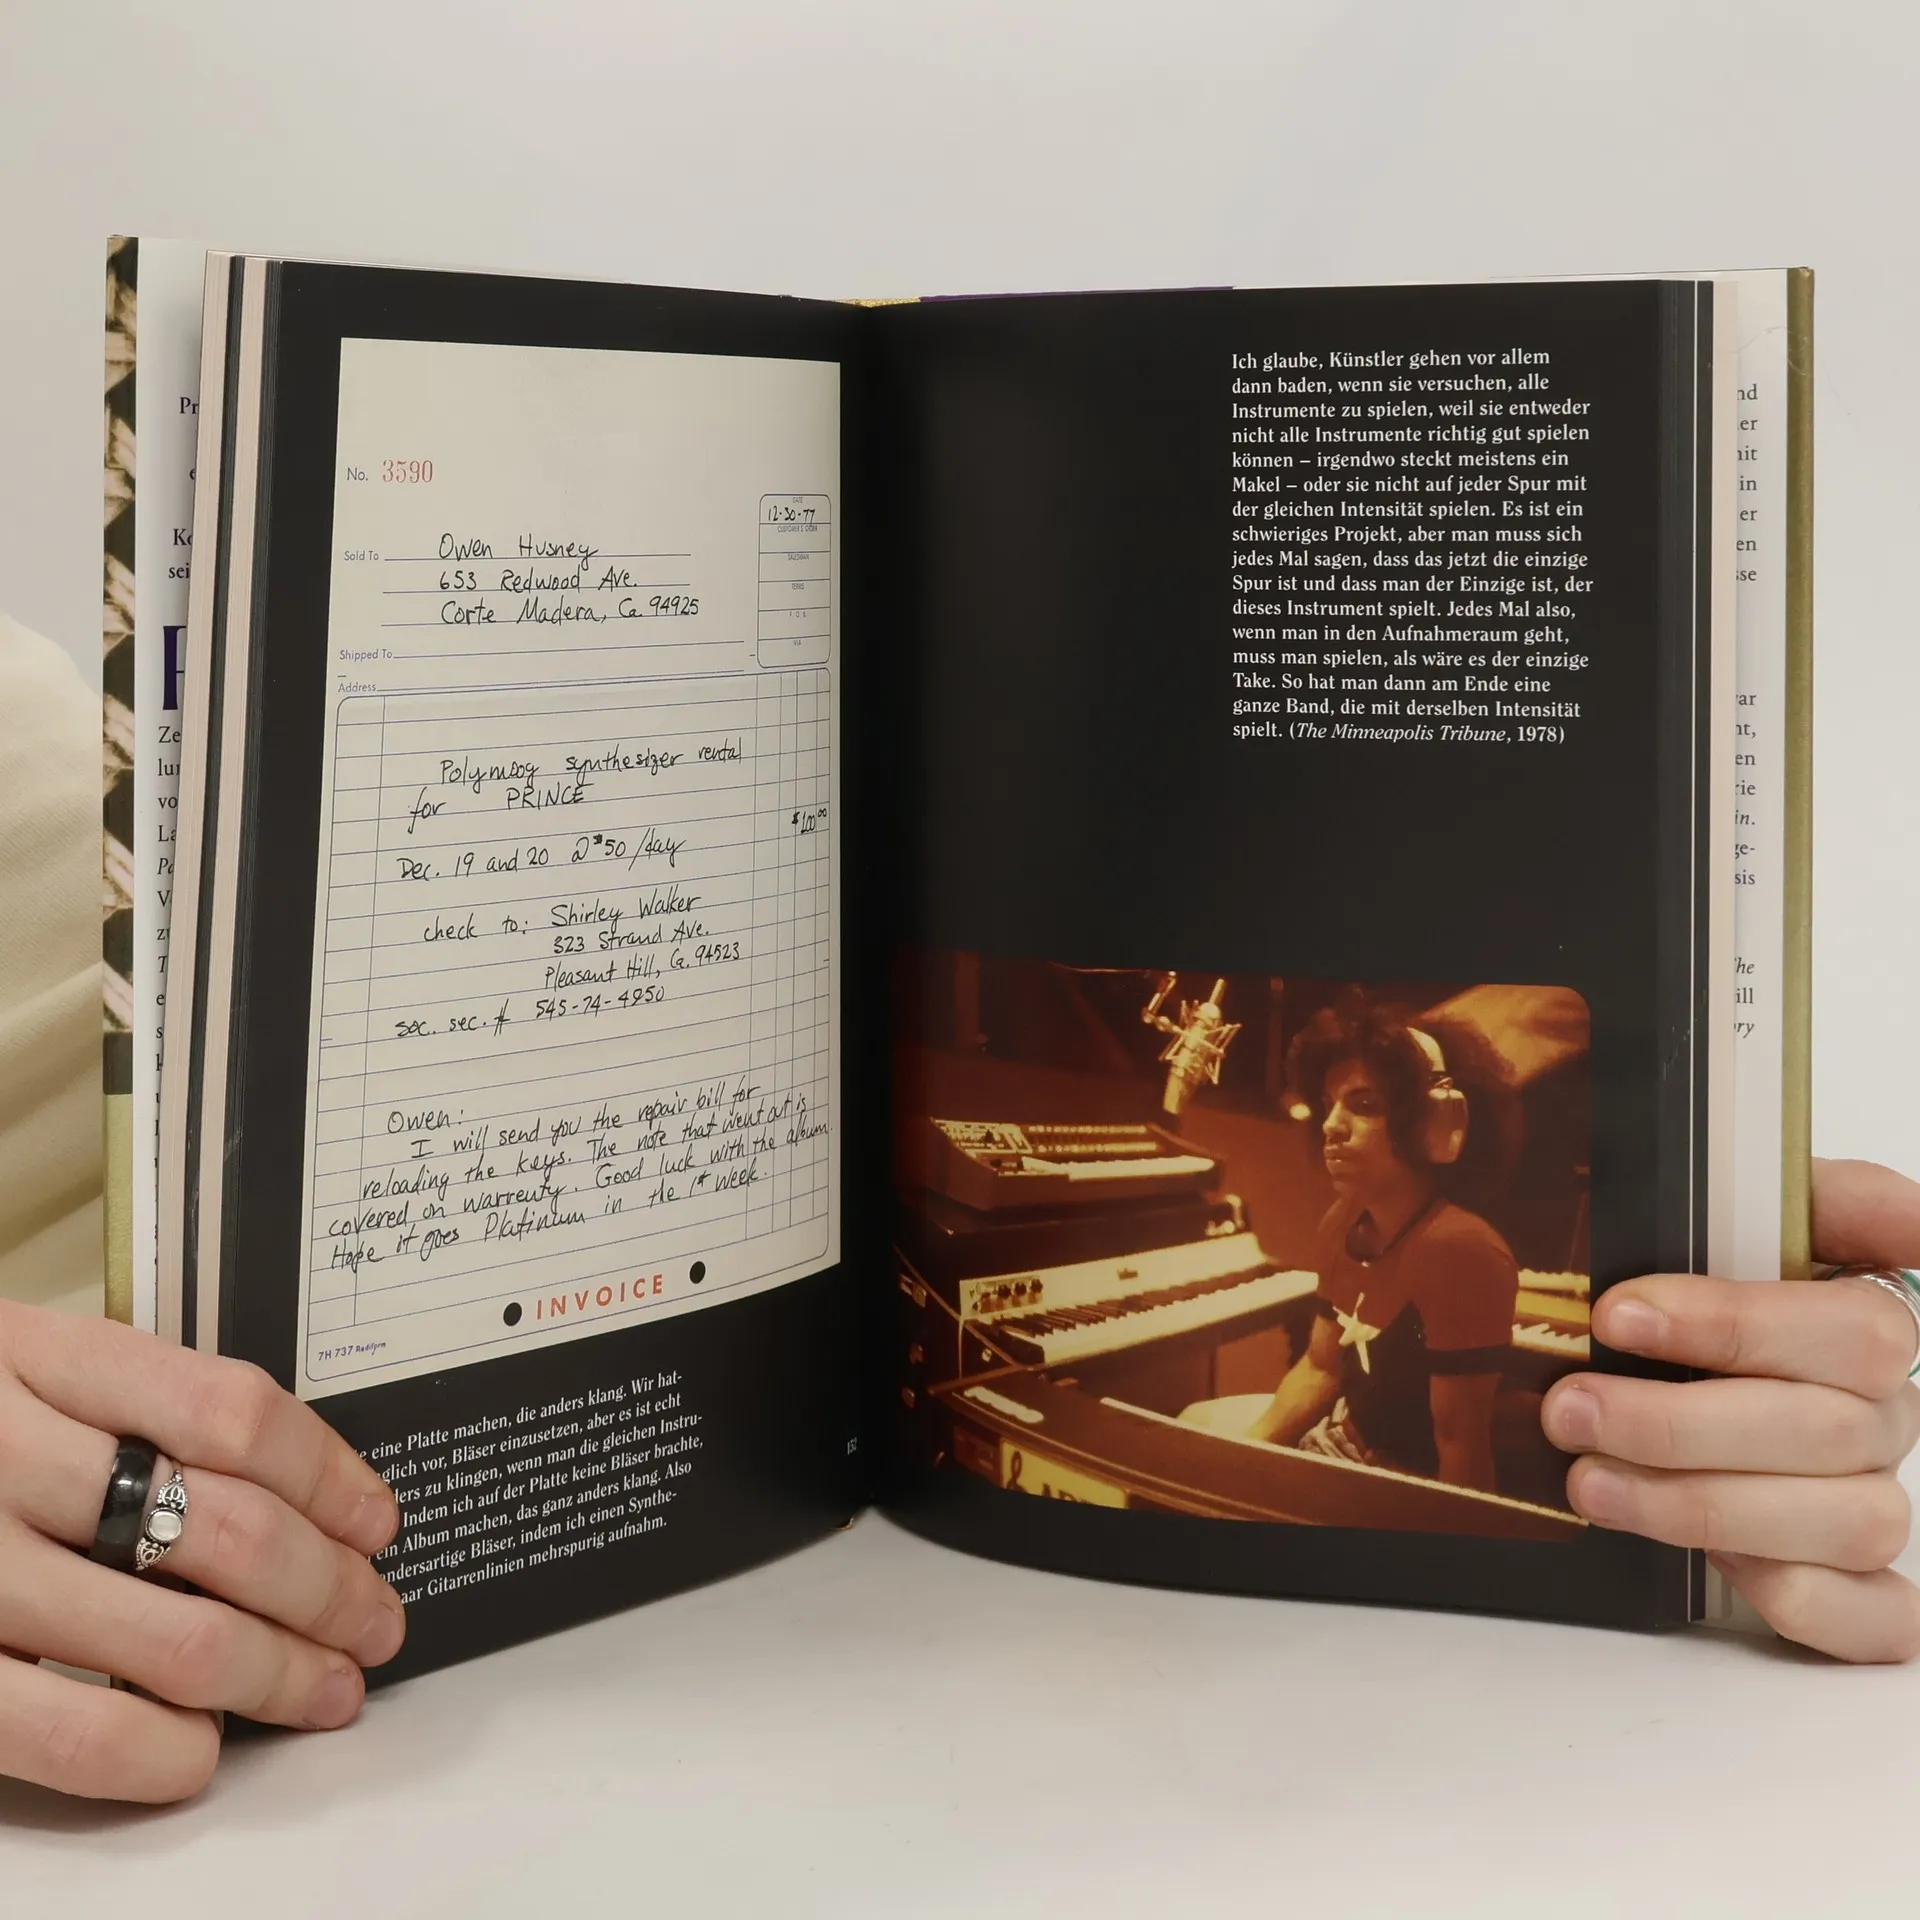 Pr
e
Ko
sei
P
Ze
lun
vo
La
Po
V
zu
T
e
s
k
No. 3590
DATE
12-30-77
CUSTOMER'S ORDER
SALESMAN
TERMS
F.O.B.
VIA
Sold To Owen Husney
653 Redwood Ave.
Corte Madera, Ca. 94925
Shipped To
Address
Polymoog synthesizer rental
for PRINCE
$100 00
Dec. 19 and 20 @ $50/day
check to: Shirley Walker
323 Strand Ave.
Pleasant Hill, Ca. 94523
soc. sec. # 545-74-4950
Owen:
I will send you the repair bill for
reloading the keys. The note that went out is
covered on warrenty. Good luck with the album.
Hope it goes Platinum in the 1st week.
INVOICE
7H 737 Rediform
e eine Platte machen, die anders klang. Wir hat-
glich vor, Bläser einzusetzen, aber es ist echt
ders zu klingen, wenn man die gleichen Instru-
Indem ich auf der Platte keine Bläser brachte,
ein Album machen, das ganz anders klang. Also
ndersartige Bläser, indem ich einen Synthe-
aar Gitarrenlinien mehrspurig aufnahm.
152
Ich glaube, Künstler gehen vor allem
dann baden, wenn sie versuchen, alle
Instrumente zu spielen, weil sie entweder
nicht alle Instrumente richtig gut spielen
können – irgendwo steckt meistens ein
Makel – oder sie nicht auf jeder Spur mit
der gleichen Intensität spielen. Es ist ein
schwieriges Projekt, aber man muss sich
jedes Mal sagen, dass das jetzt die einzige
Spur ist und dass man der Einzige ist, der
dieses Instrument spielt. Jedes Mal also,
wenn man in den Aufnahmeraum geht,
muss man spielen, als wäre es der einzige
Take. So hat man dann am Ende eine
ganze Band, die mit derselben Intensität
spielt. (The Minneapolis Tribune, 1978)
nd
er
nit
in
er
en
sse
ar
nt,
en
rie
in.
ge-
sis
he
ill
ry